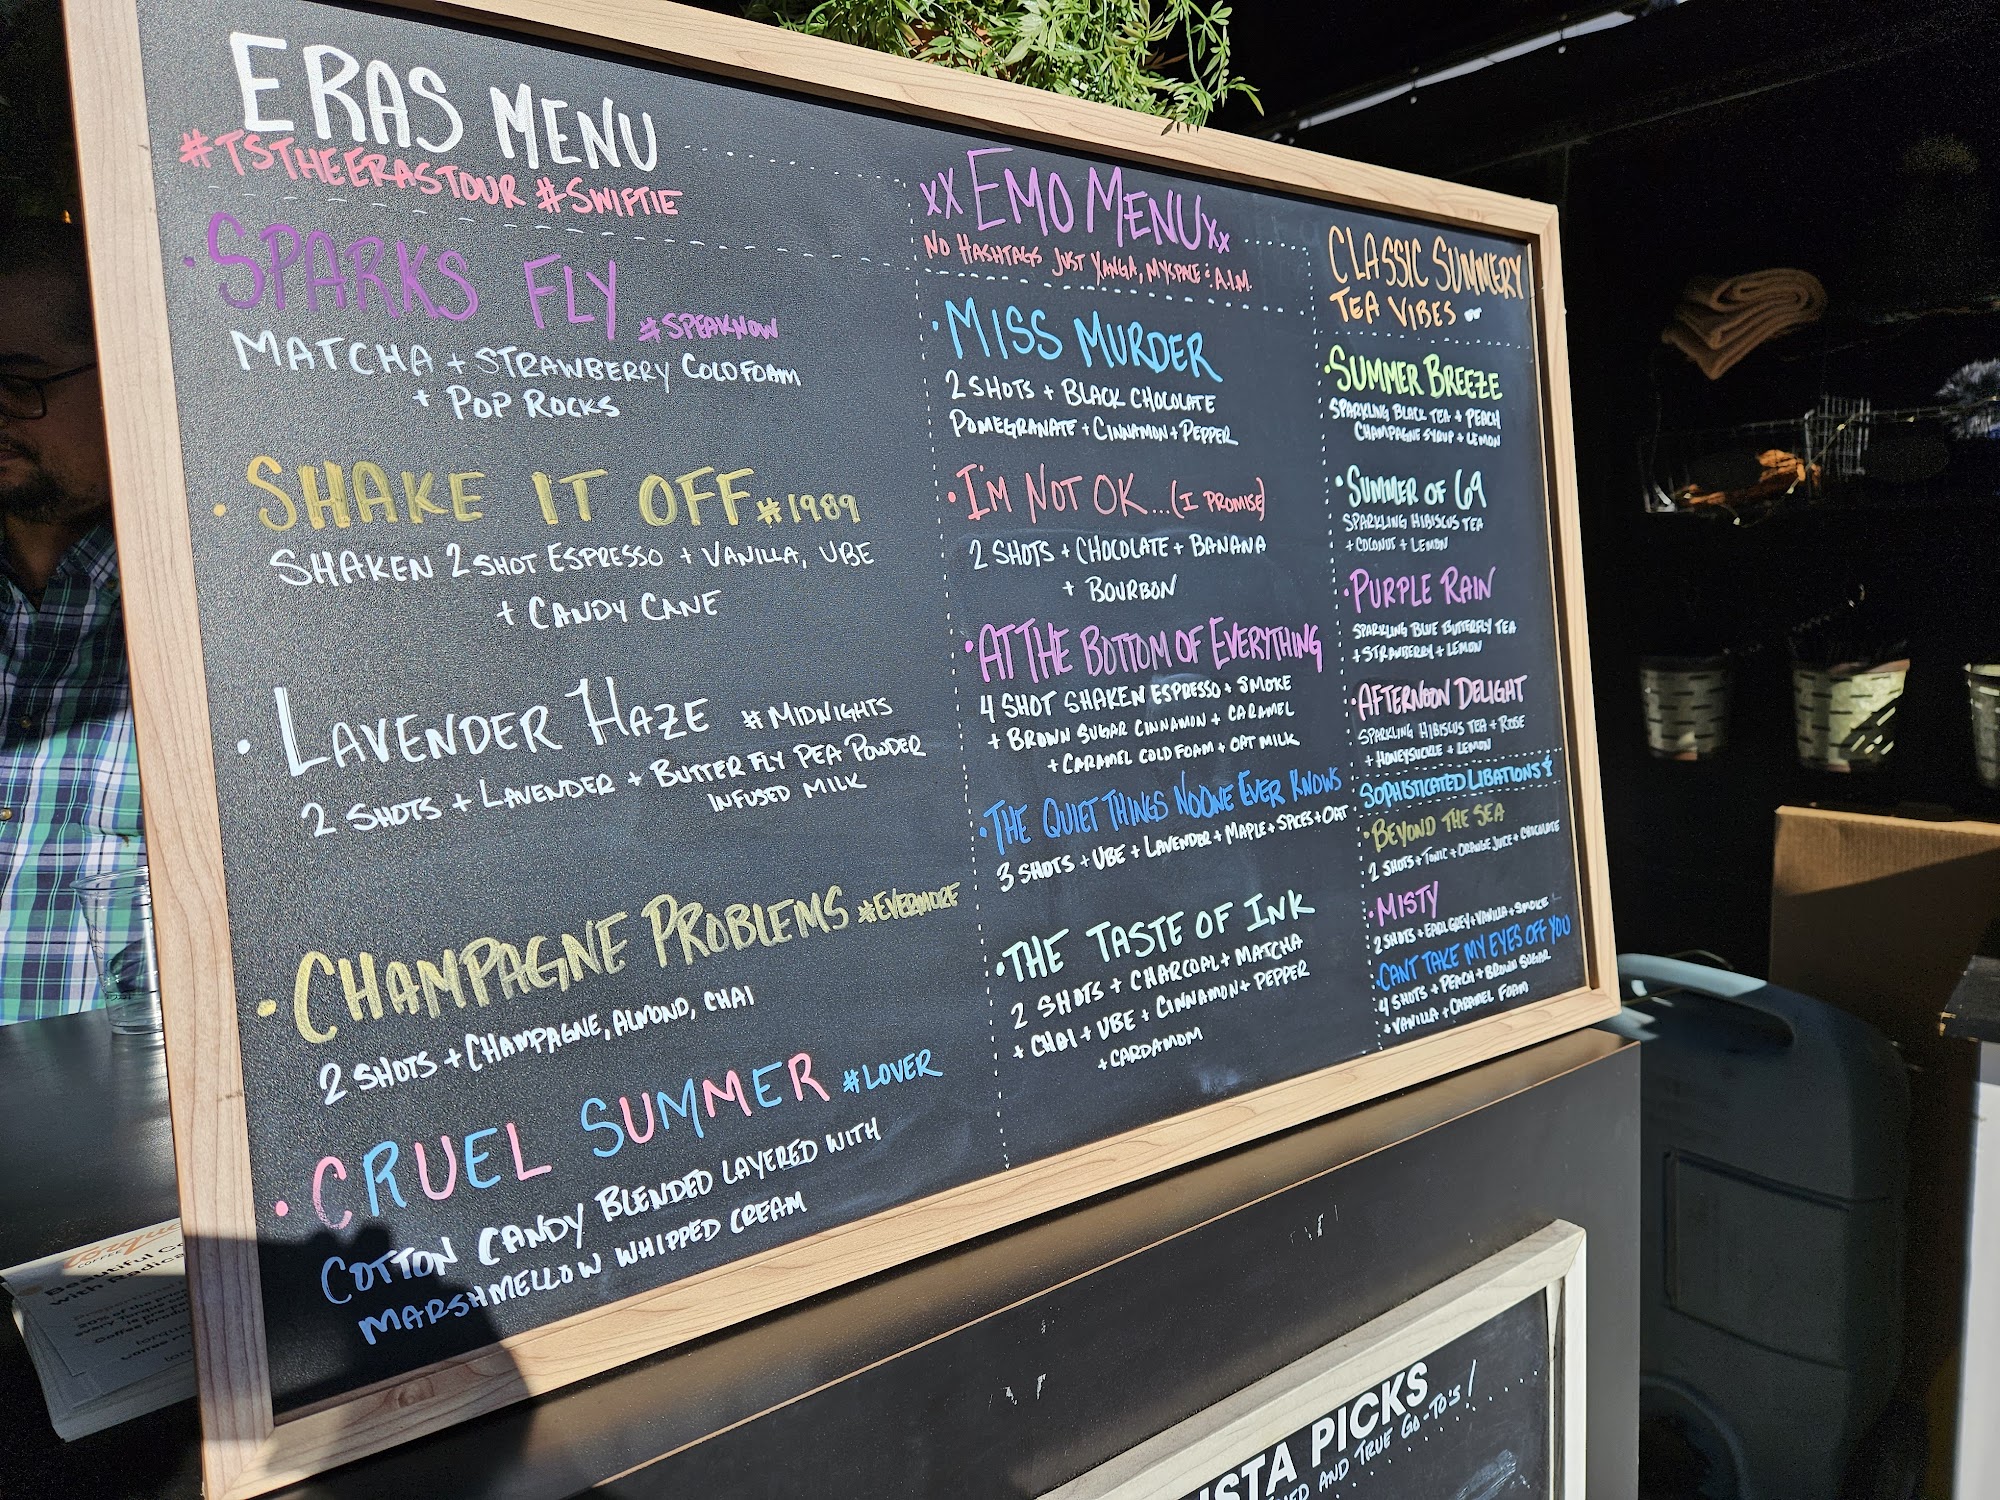 ERAS MENU
#TSTHEERASTOUR #SWIFTIE
• SPARKS FLY #SPEAKNOW
MATCHA + STRAWBERRY COLD FOAM
+ POP ROCKS
• SHAKE IT OFF #1989
SHAKEN 2 SHOT ESPRESSO + VANILLA, UBE
+ CANDY CANE
• LAVENDER HAZE #MIDNIGHTS
2 SHOTS + LAVENDER + BUTTERFLY PEA POWDER
INFUSED MILK
• CHAMPAGNE PROBLEMS #EVERMORE
2 SHOTS + CHAMPAGNE, ALMOND, CHAI
• CRUEL SUMMER #LOVER
COTTON CANDY BLENDED LAYERED WITH
MARSHMELLOW WHIPPED CREAM
xX EMO MENU Xx
NO HASHTAGS JUST XANGA, MYSPACE & A.I.M.
• MISS MURDER
2 SHOTS + BLACK CHOCOLATE
POMEGRANATE + CINNAMON + PEPPER
• I'M NOT OK...(I PROMISE)
2 SHOTS + CHOCOLATE + BANANA
+ BOURBON
• AT THE BOTTOM OF EVERYTHING
4 SHOT SHAKEN ESPRESSO + SMOKE
+ BROWN SUGAR CINNAMON + CARAMEL
+ CARAMEL COLD FOAM + OAT MILK
• THE QUIET THINGS NO ONE EVER KNOWS
3 SHOTS + UBE + LAVENDER + MAPLE + SPICES + OAT
• THE TASTE OF INK
2 SHOTS + CHARCOAL + MATCHA
+ CHAI + UBE + CINNAMON + PEPPER
+ CARDAMOM
CLASSIC SUMMERY
TEA VIBES
• SUMMER BREEZE
SPARKLING BLACK TEA + PEACH
CHAMPAGNE SYRUP + LEMON
• SUMMER OF 69
SPARKLING HIBISCUS TEA
+ COCONUT + LEMON
• PURPLE RAIN
SPARKLING BLUE BUTTERFLY TEA
+ STRAWBERRY + LEMON
• AFTERNOON DELIGHT
SPARKLING HIBISCUS TEA + ROSE
+ HONEYSUCKLE + LEMON
SOPHISTICATED LIBATIONS
• BEYOND THE SEA
2 SHOTS + TONIC + ORANGE JUICE + CHOCOLATE
• MISTY
2 SHOTS + EARL GREY + VANILLA + SMOKE
• CANT TAKE MY EYES OFF YOU
4 SHOTS + PEACH + BROWN SUGAR
+ VANILLA + CARAMEL FOAM
PICKS
AND TRUE GO-TO'S!
COFFEE